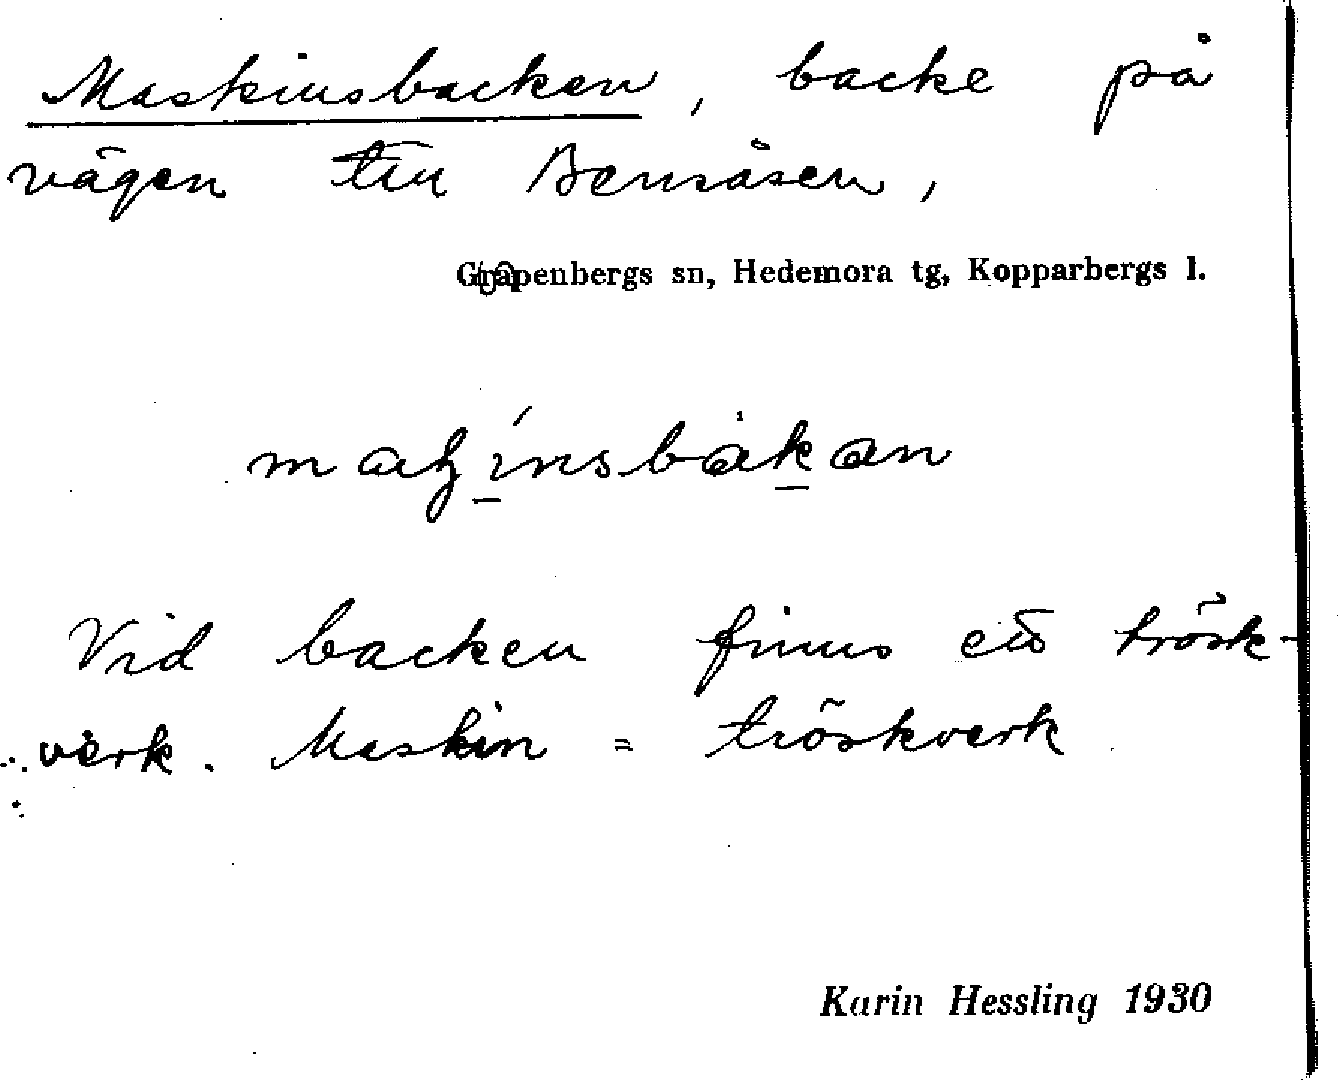 Maskinsbacken, backe på
vägen till Bensåsen,
Grapenbergs sn, Hedemora tg, Kopparbergs l.
Vid backen finns ett trösk-
verk. Maskin = tröskverk
Karin Hessling 1930